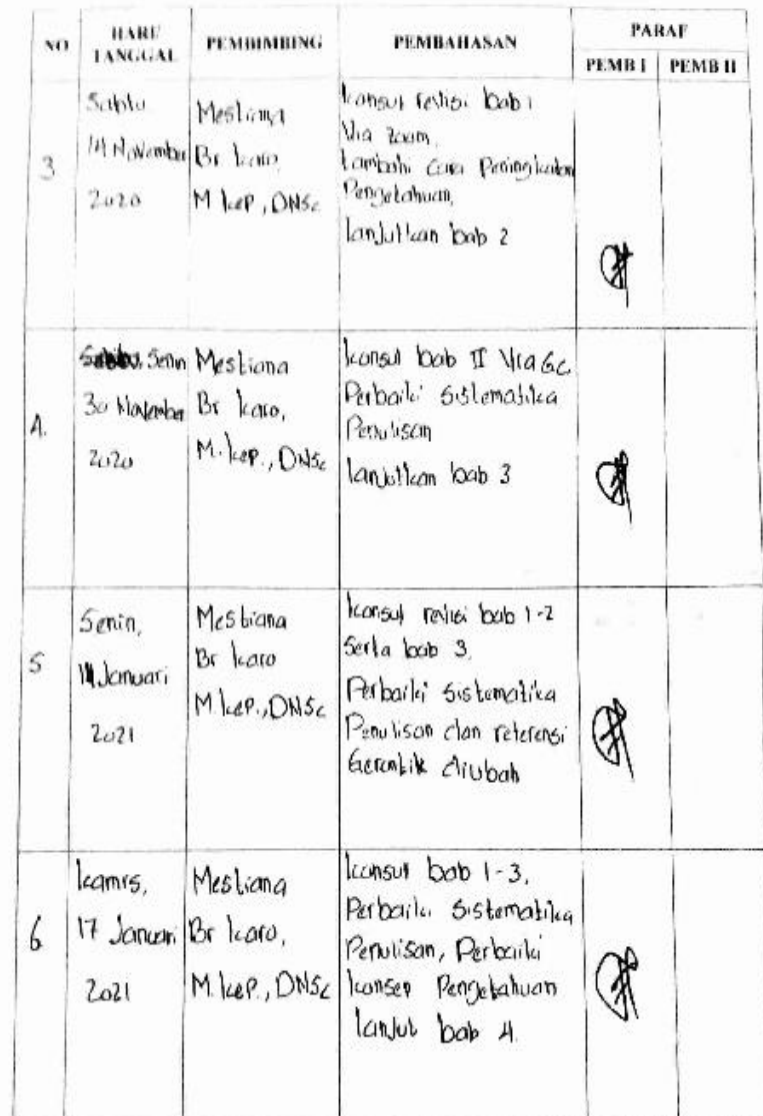 NO HARI/ TANGGAL PEMBIMBING PEMBAHASAN PARAF
PEMB I PEMB II
3
Sabtu
14 November
2020
Mestiana
Br karo,
M.kep., DNSc
konsul revisi bab 1
Via zoom,
tambahi cara Peningkatan
Pengetahuan,
lanjutkan bab 2
4.
Senin
30 November
2020
Mestiana
Br karo,
M.kep., DNSc
konsul bab II Via Gc
Perbaiki sistematika
Penulisan
lanjutkan bab 3
5
Senin,
Januari
2021
Mestiana
Br karo
M.kep., DNSc
konsul revisi bab 1-2
Serta bab 3,
Perbaiki sistematika
Penulisan dan referensi
Gerontik diubah
6
kamis,
17 Januari
2021
Mestiana
Br karo,
M.kep., DNSc
konsul bab 1-3,
Perbaiki sistematika
Penulisan, Perbaiki
konsep Pengetahuan
lanjut bab 4